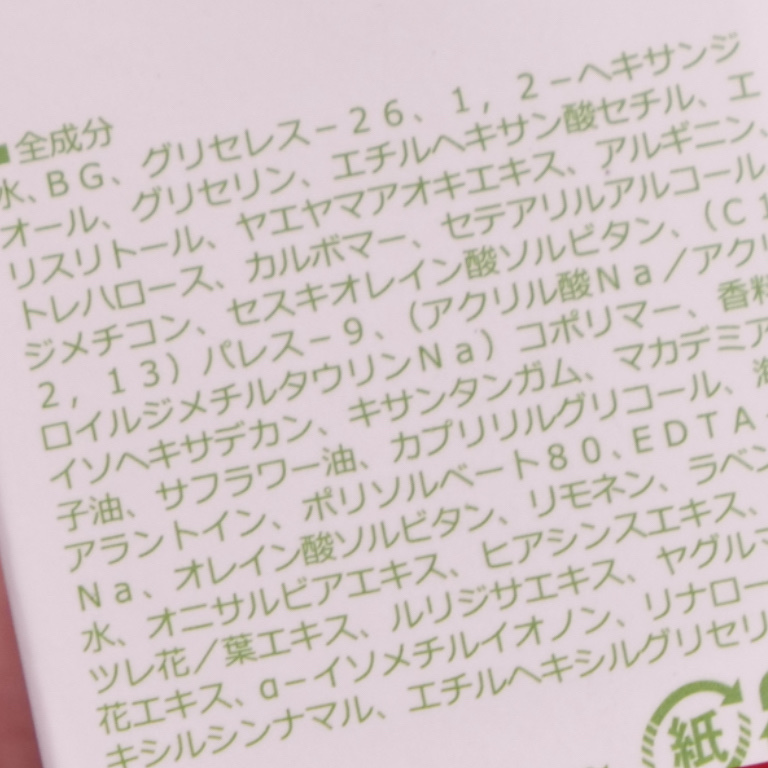 ■全成分
水、BG、グリセレス－26、1，2－ヘキサンジ
オール、グリセリン、エチルヘキサン酸セチル、エ
リスリトール、ヤエヤマアオキエキス、アルギニン、
トレハロース、カルボマー、セテアリルアルコール、
ジメチコン、セスキオレイン酸ソルビタン、（C1
2，13）パレス－9、（アクリル酸Na／アクリ
ロイルジメチルタウリンNa）コポリマー、香料
イソヘキサデカン、キサンタンガム、マカデミア
子油、サフラワー油、カプリリルグリコール、海
アラントイン、ポリソルベート80、EDTA－
Na、オレイン酸ソルビタン、リモネン、ラベン
水、オニサルビアエキス、ヒアシンスエキス、
ツレ花／葉エキス、ルリジサエキス、ヤグルマ
花エキス、α－イソメチルイオノン、リナロー
キシルシンナマル、エチルヘキシルグリセリ
紙